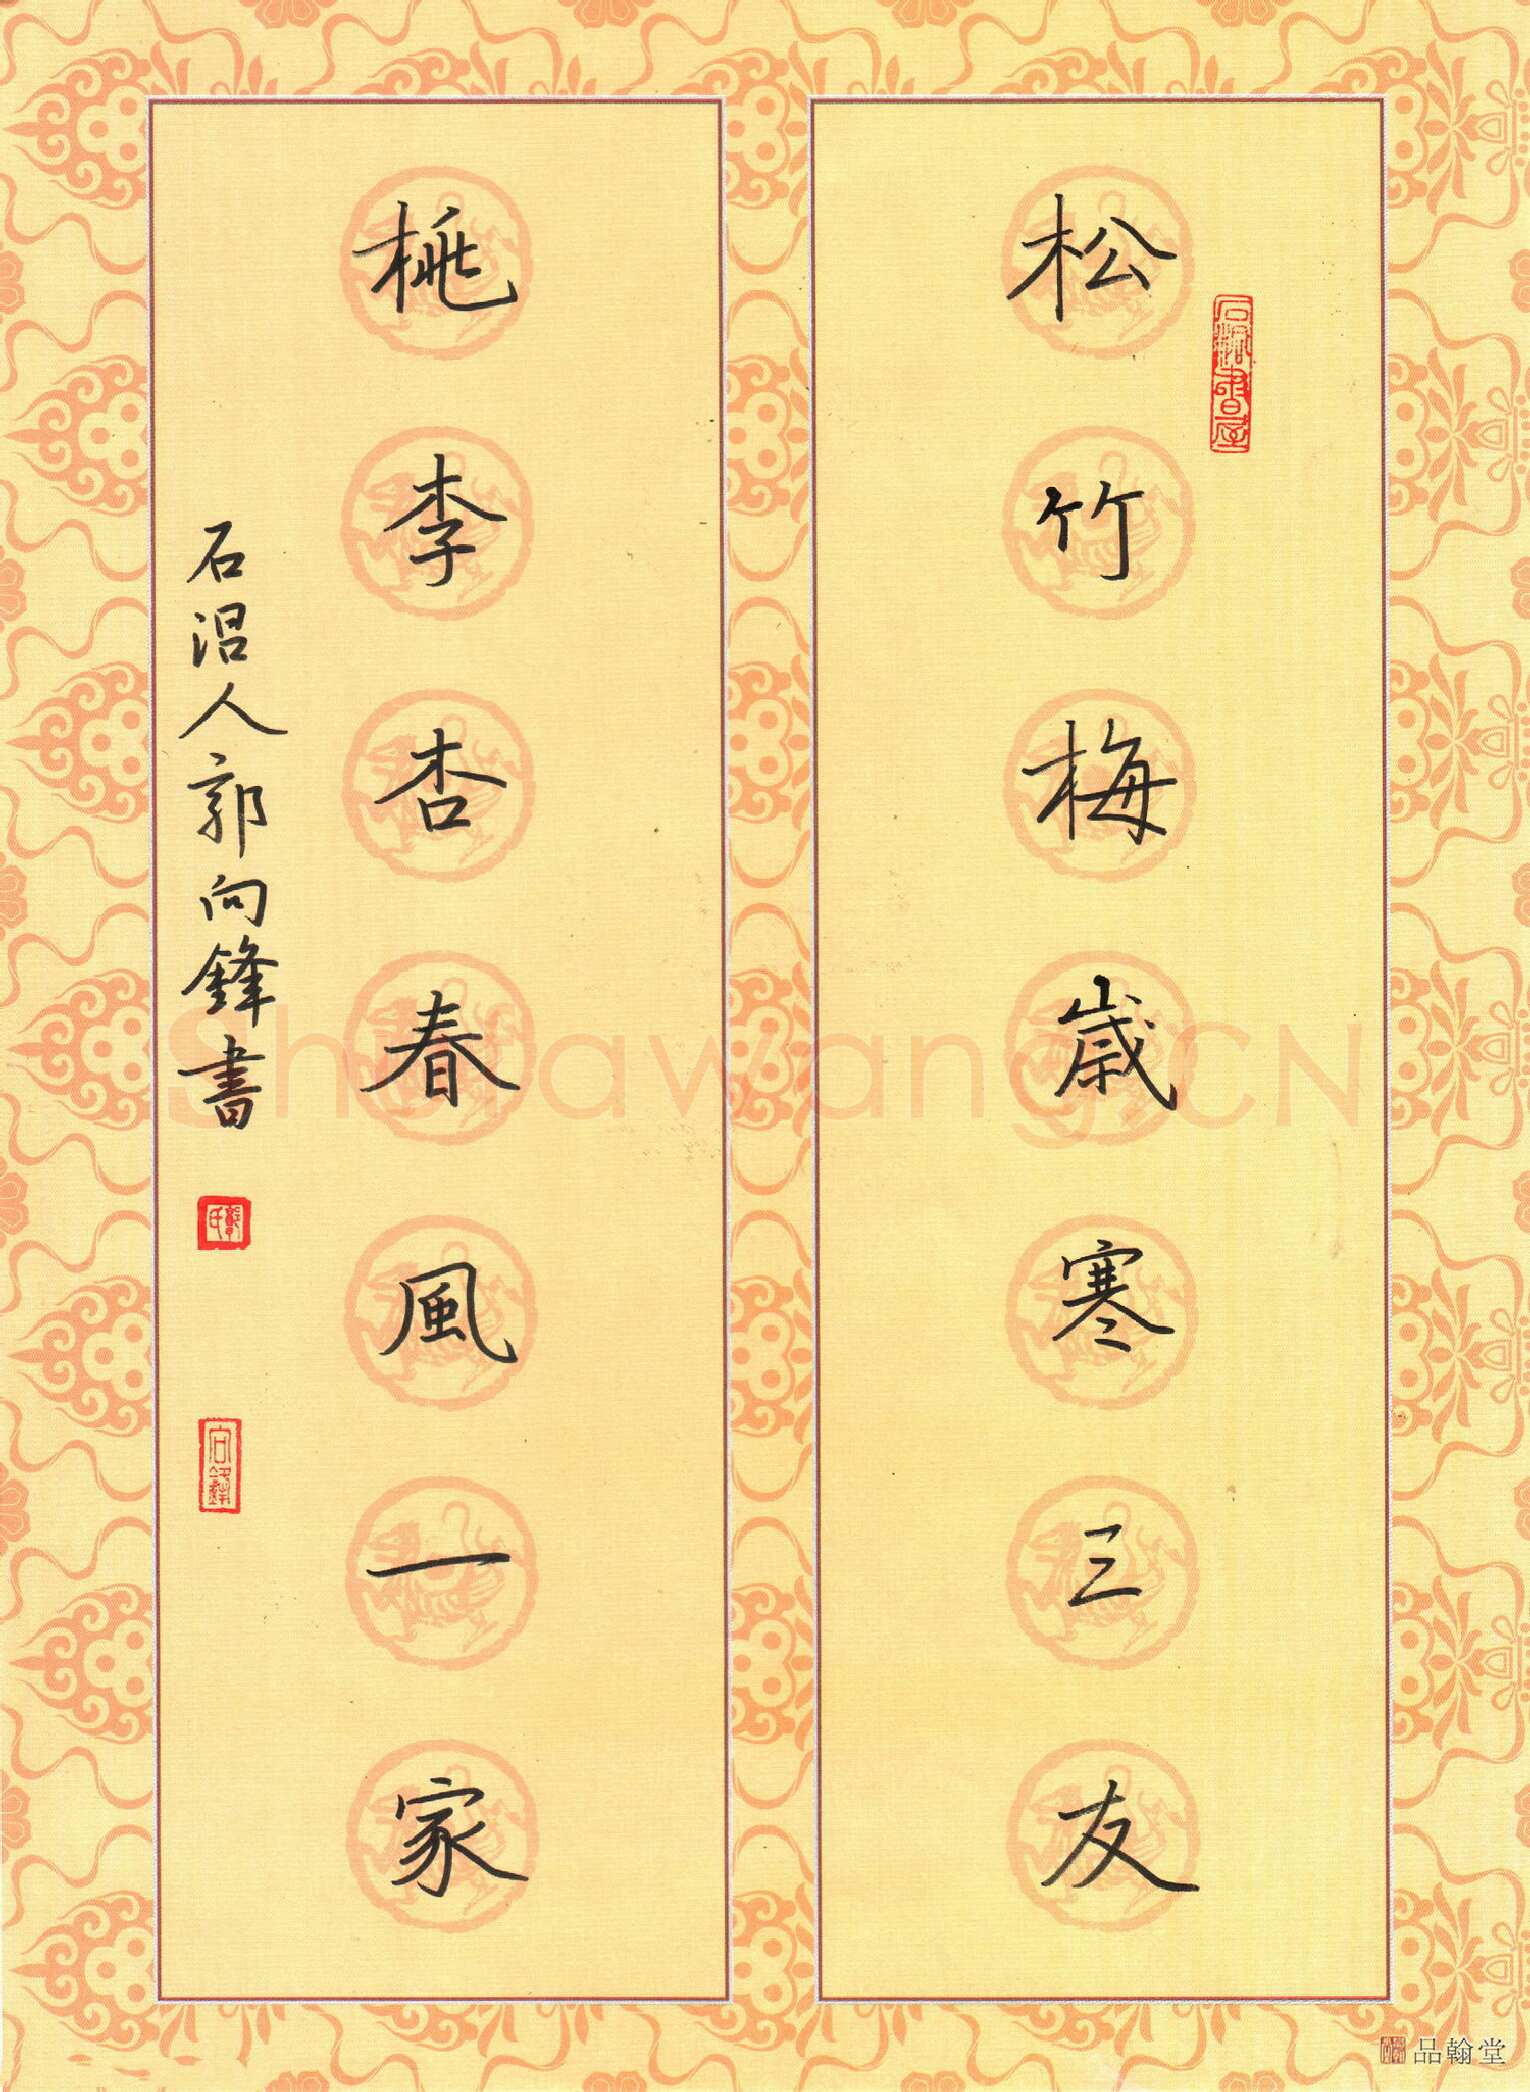 松竹梅歲寒三友
桃李杏春風一家
石沼人郭向鋒書
郭氏
向鋒
ShufawangCN
品翰堂